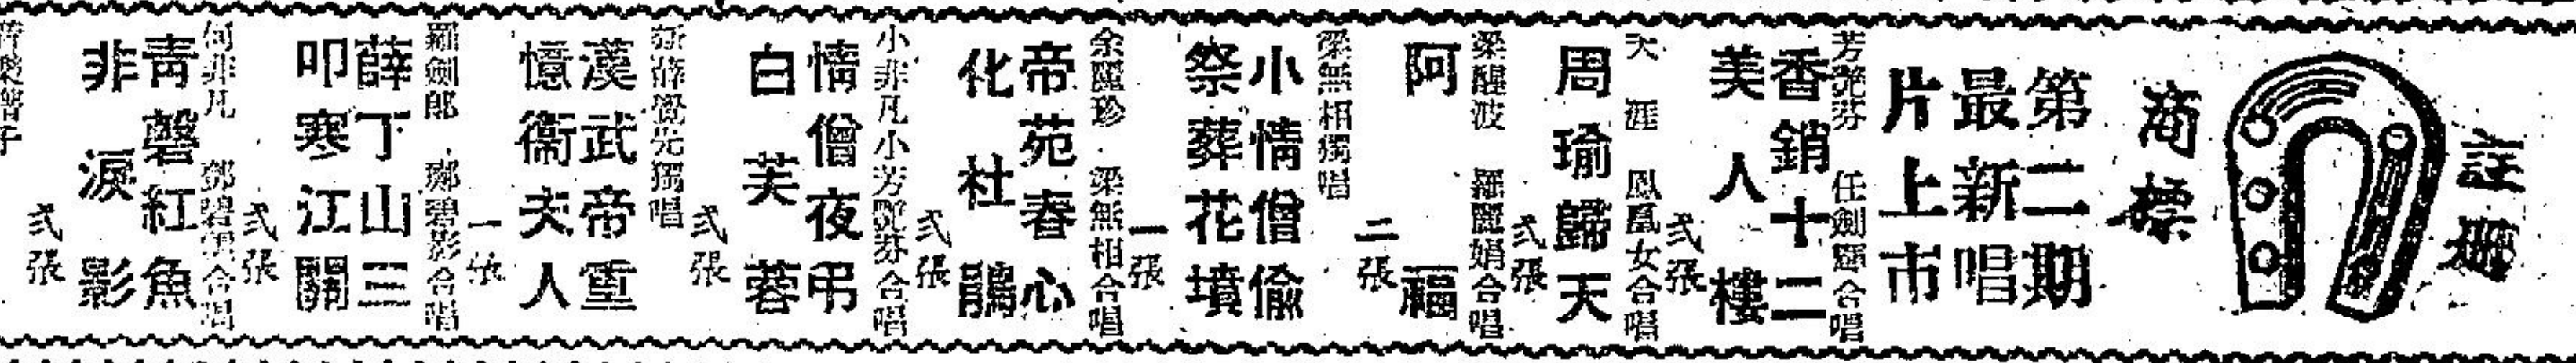 註冊
商標
第二期
最新唱
片上市
芳艷芬 任劍輝合唱
香銷十二
美人樓
弍張
天涯 鳳凰女合唱
周瑜歸天
弍張
梁醒波 羅麗娟合唱
阿福
二張
梁無相獨唱
小情僧偷
祭葬花墳
一張
余麗珍 梁無相合唱
帝苑春心
化杜鵑
弍張
小非凡小芳艷芬合唱
情僧夜弔
白芙蓉
弍張
新薛覺先獨唱
漢武帝重
憶衞夫人
一張
羅劍郎 鄭碧影合唱
薛丁山三
叩寒江關
弍張
何非凡 鄭碧影合唱
青磬紅魚
非淚影
弍張